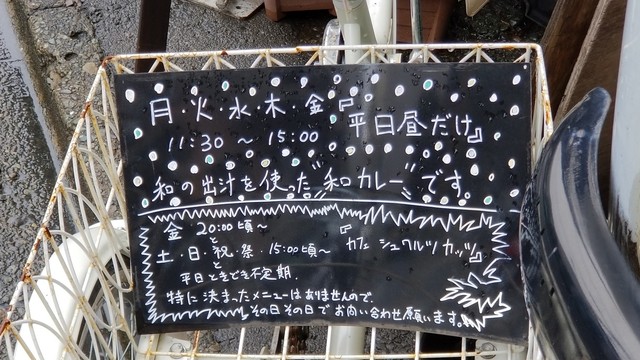 月・火・水・木・金
『平日昼だけ』
11:30 ~ 15:00
和の出汁を使った"和カレー"です。
金 20:00頃~
と
土・日・祝・祭・15:00頃~
『カフェ シュワルツカッツ』
と
平日ときどき不定期.
特に決まったメニューはありませんので、
その日その日でお問い合わせ願います。